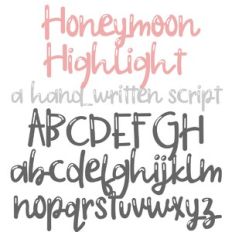 Honeymoon
Highlight
a hand_written script
ABCDEFGH
abcdefghijklm
nopqrstuvwxyz